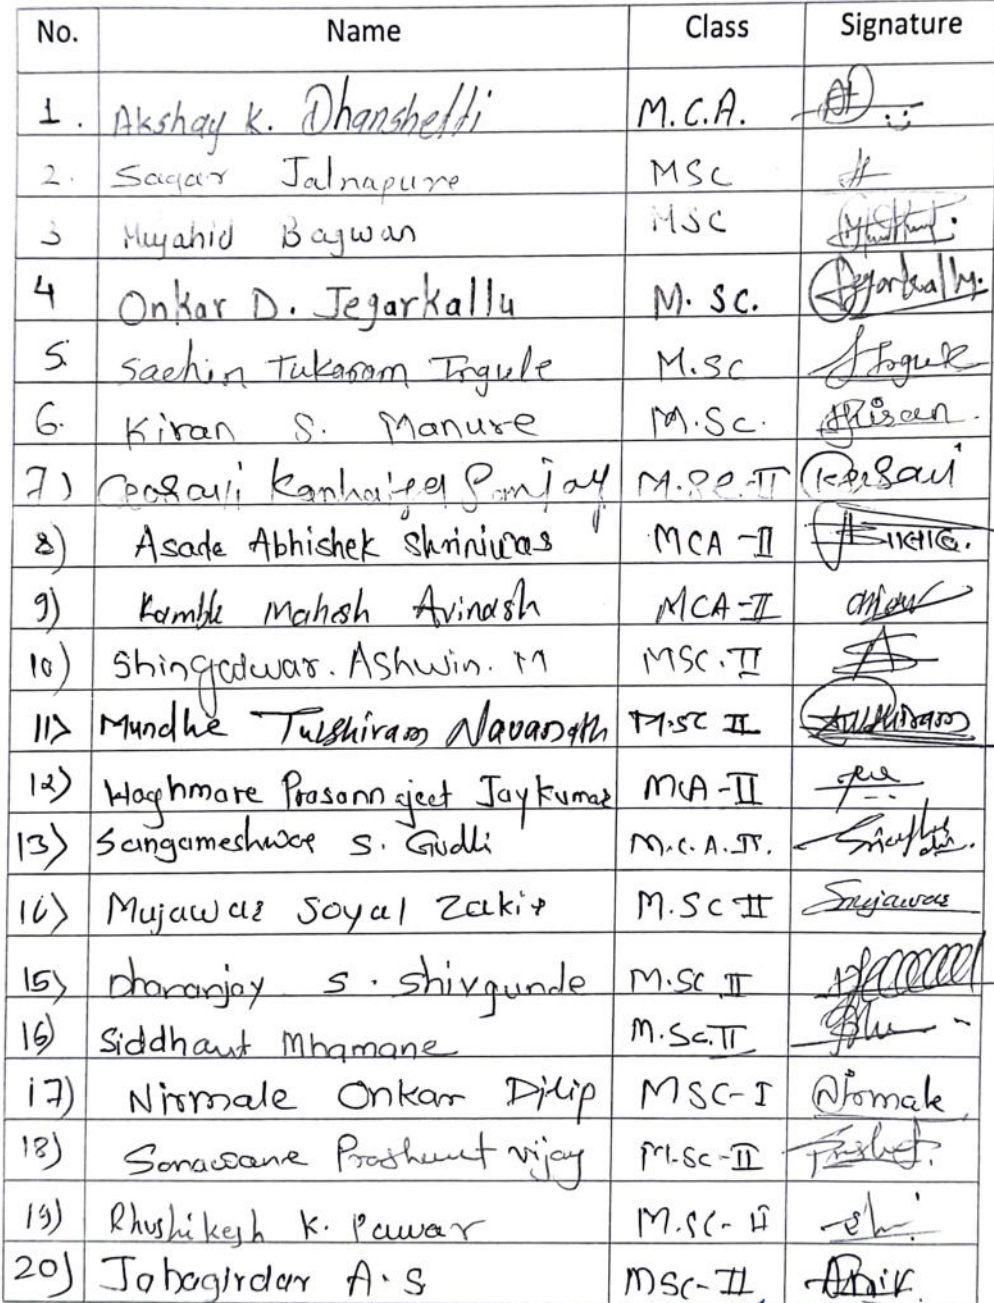 No. Name Class Signature
1. Akshay K. Dhanshetti M.C.A.
2. Sagar Jalnapure MSC
3 Mujahid Bagwan MSC
4 Onkar D. Jegarkallu M. SC. Jegarkallu
5. Sachin Tukaram Ingule M.SC Ingule
6. Kiran S. Manure M.Sc. Kiran
7) Gosavi Kanhaiya Sanjay M.SC-II
8) Asade Abhishek Shriniwas MCA-II
9) Kamble Mahesh Avinash MCA-II
10) Shingadwar. Ashwin. M MSC.II
11) Mundhe Tulshiram Navanath M.SC II Tulshiram
12) Waghmare Prasannajeet Jaykumar MCA-II
13) Sangameshwar S. Gudli M.C.A.II.
14) Mujawar Soyal Zakir M.SC II Smujawar
15) Dhananjay S. Shivgunde M.SC II
16) Siddhant Mhamane M.Sc.II
17) Nirmale Onkar Dilip MSC-I Nirmale
18) Sonawane Prashant vijay M.Sc-II
19) Rhushikesh K. Pawar M.SC-II
20) Jahagirdar A.S MSC-II